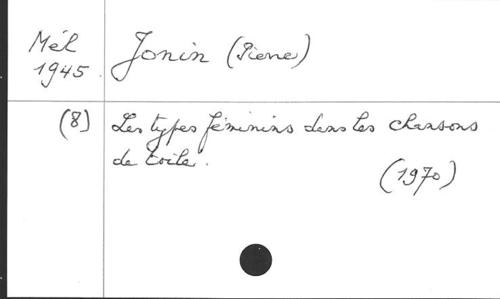 Mél
1945.
Jonin (Pierre)
(8)
Les types féminins dans les chansons
de toile.
(1970)